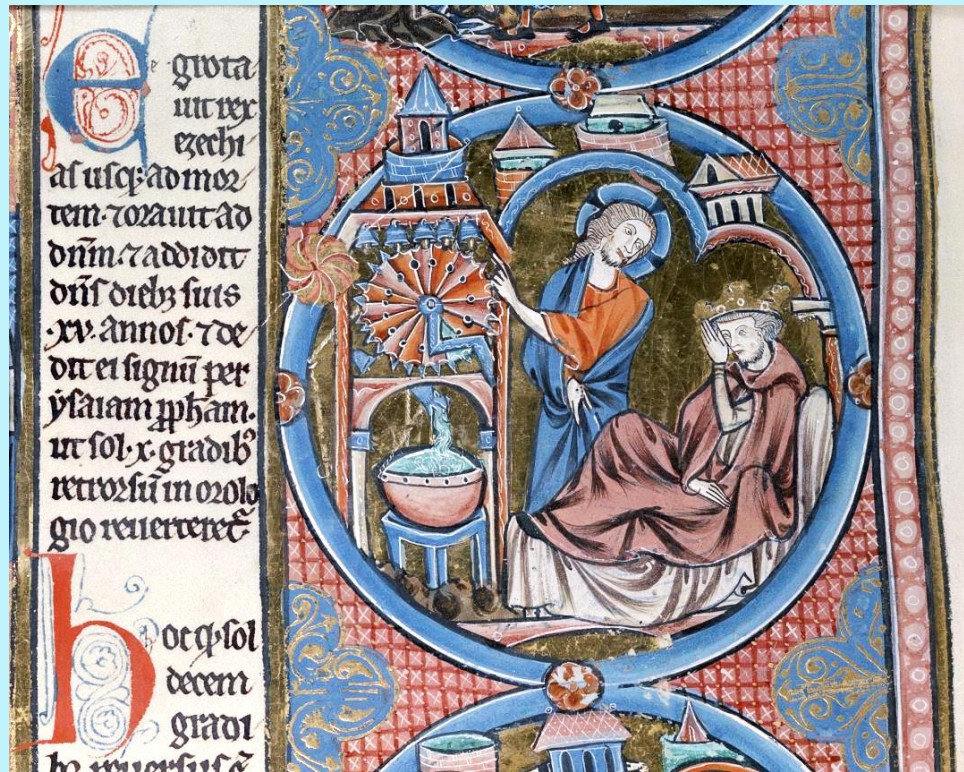 Egrota
uit rex
ezechi
as usq; ad mor
tem. ⁊ orauit ad
dn̄m. ⁊ addidit
dn̄s dieb; suis
.xv. annos. ⁊ de
dit ei signū per
ysaiam ꝓph̄am.
ut sol .x. gradibꝰ
retrorsū in orolo
gio reuerteret᷑.
hoc ꝙ sol
decem
gradi
bꝫ reuersus ē